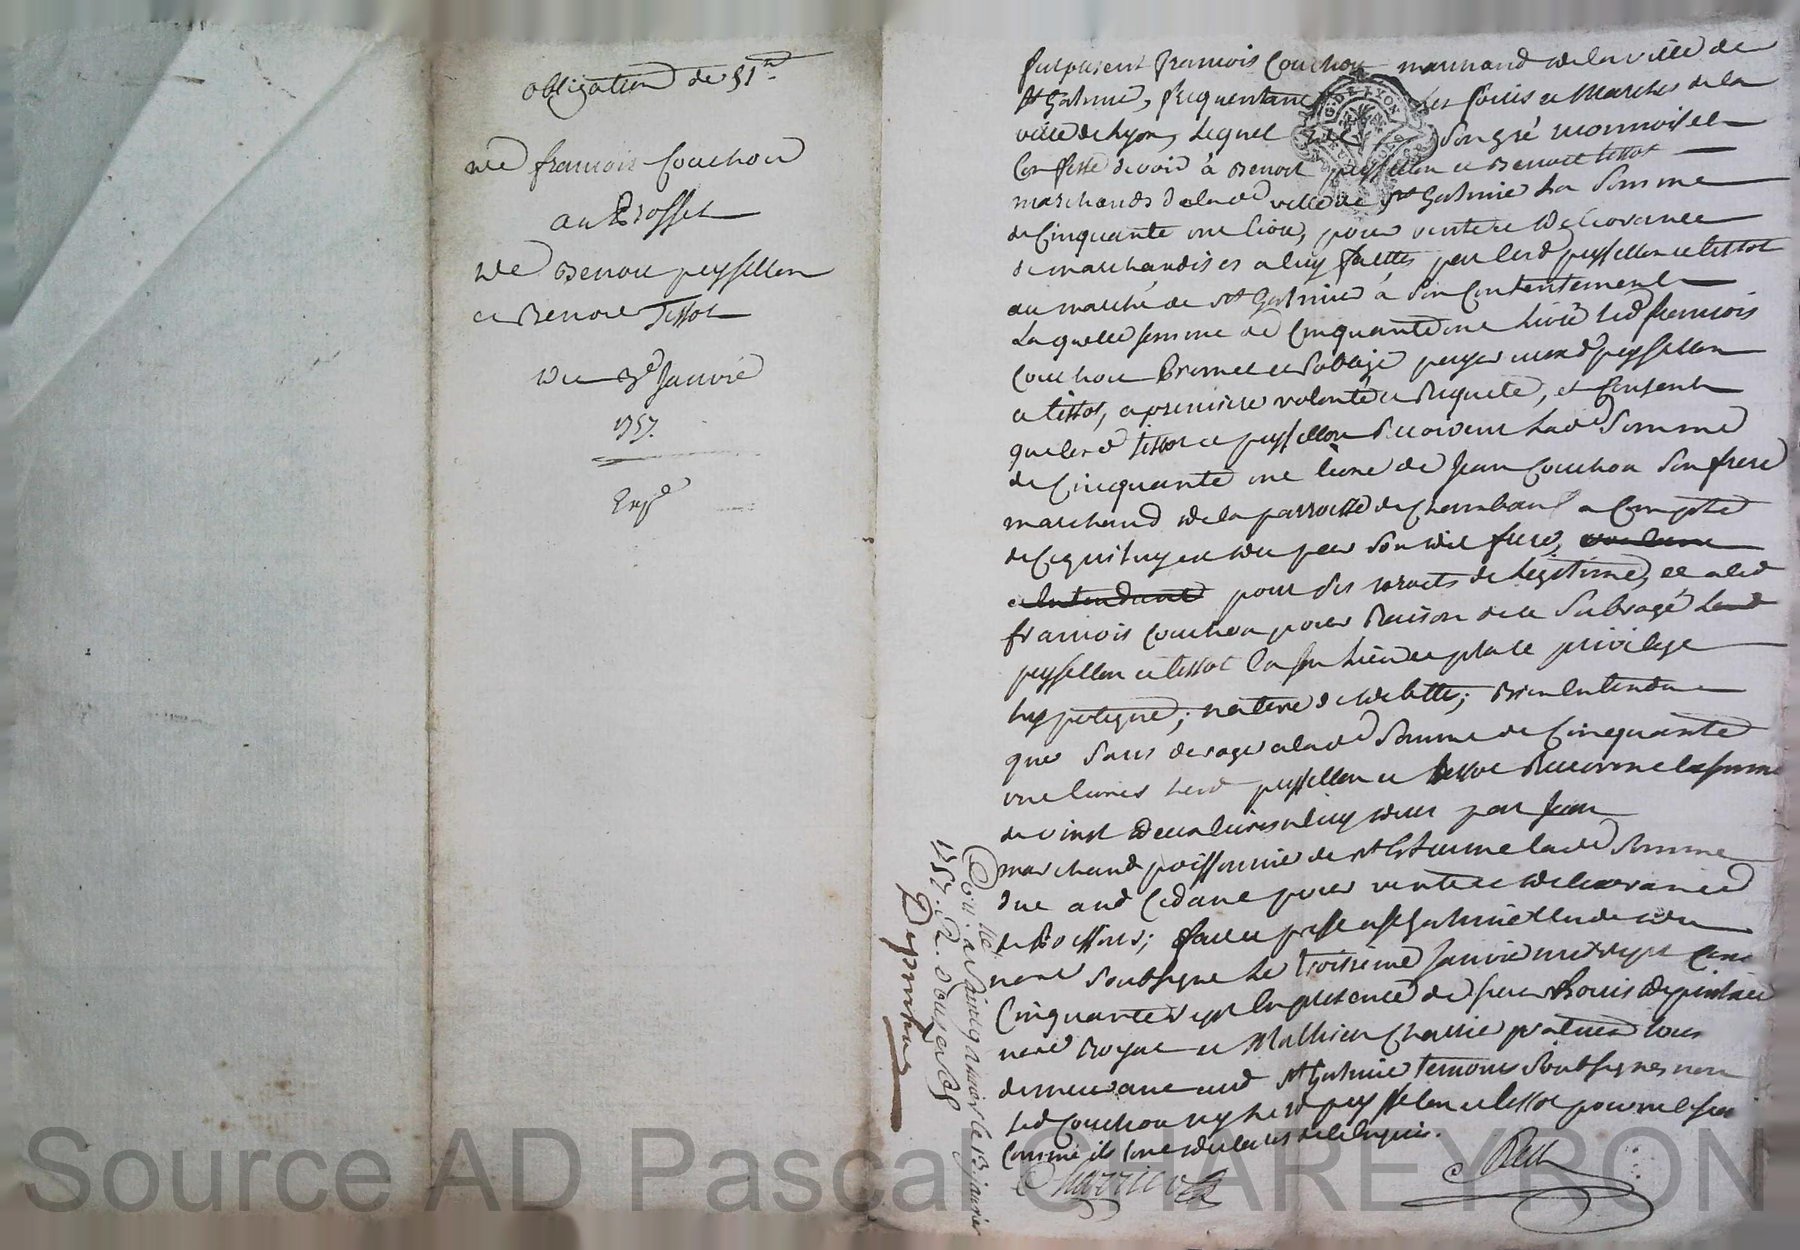 obligation de 51ᵗᵗ
de francois Couchou
au Proffit
de Benoit peyssellon
et Benoit Tissot
du 3e Janvié
1757.
Exp.d
fut present francois Couchou marchand de la ville de
st Galmié, frequentant les foires et Marchés de la
ville de Lyon, Lequel de son gré reconnoist et
Confesse devoir à Benoit peyssellon et Benoit tissot
marchands de lad. ville de st Galmié La somme
de Cinquante une livre, pour vente et delivrance
de marchandises a luy faittes par lesd peyssellon et tissot
au marché de st Galmié à son Contentement
Laquelle somme de Cinquante une Livre led francois
Couchou Promet et s'oblige payer auxd peyssellon
et tissot, a premiere volonté et Requete, et Consent
que lesd tissot et peyssellon Recoivent lad somme
de Cinquante une livre de Jean Couchou son frere
marchand de la parroisse de Chambau a Compte
de ce qui luy est du par son dit frere,
et Entendant pour ses droits de Legitime, et a led
francois Couchou pour Raison de ce Subrogé lesd
peyssellon et tissot En son Lieu et place privilege
hypoteque, nature de debtte; Bien Entendu
que sans deroger a lad somme de Cinquante
une livres lesd peyssellon et tissot Recevront la somme
de vingt deux livres a luy deue par Jean
marchand poissonnié de st Estienne lad somme
due aud Cedant pour vente et delivrance
de Poissons; fait et passé a st Galmié Etude du
nore soubsigné Le troisieme Janvié mil sept Cent
Cinquante sept En presence de sieur Louis
nore Royal et Mathieu Charrié praticien tous
demeurant aud st Galmié temoins soubsignés non
led Couchou ny lesd peyssellon et tissot pour ne scavoir
Comme ils l'ont declaré de ce Enquis.
Charrier
Con.lle a Saint galmier le 13 janvie
1757. R. douse sols